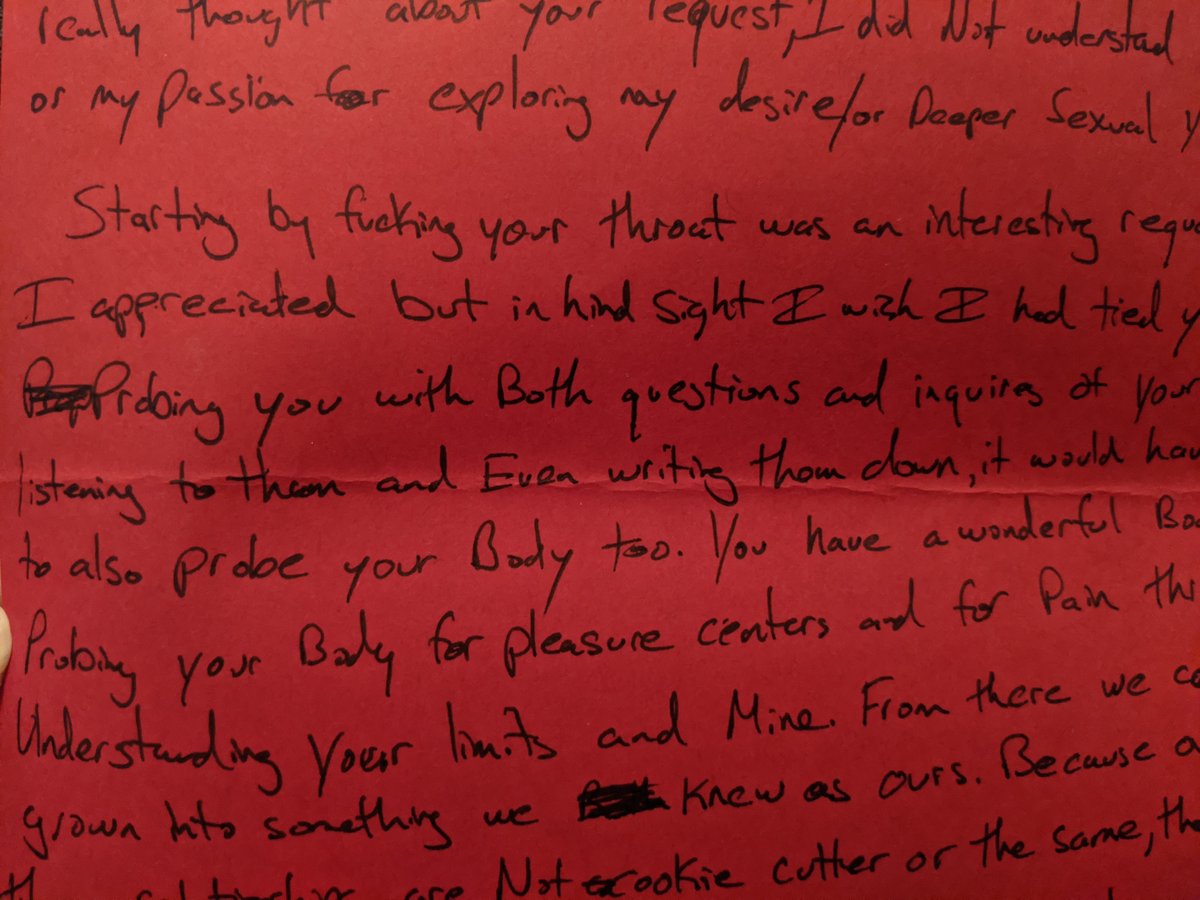 really thought about your request, I did Not understad
or my passion for exploring my desire/or Deeper Sexual
Starting by fucking your throat was an interesting requ
I appreciated but in hind sight I wish I had tied y
Probing you with Both questions and inquires of your
listening to them and Even writing them down, it would hav
to also probe your Body too. You have a wonderful Bo
Probing your Body for pleasure centers and for Pain thr
Understanding your limits and Mine. From there we co
grown into something we knew as ours. Because a
are Not cookie cutter or the same, the